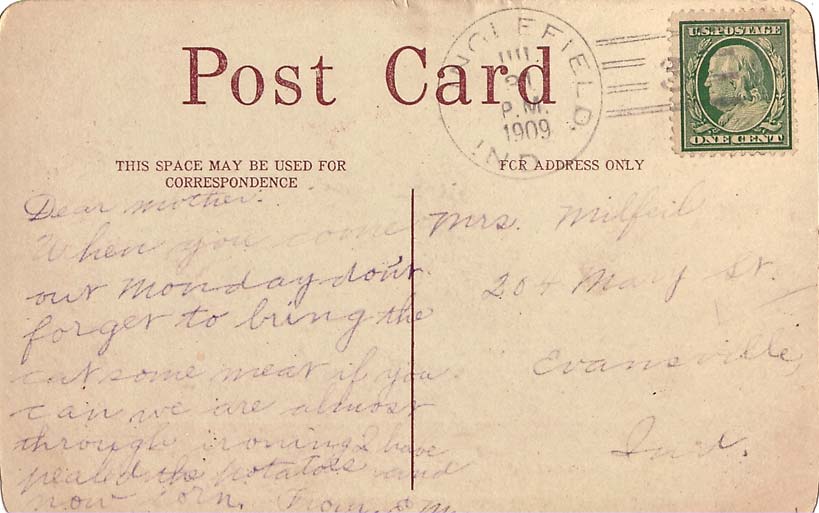 Post Card
INGLEFIELD,
21
P.M.
1909
IND.
U.S. POSTAGE
ONE CENT
THIS SPACE MAY BE USED FOR
CORRESPONDENCE
FOR ADDRESS ONLY
Dear mother.
When you come
out Monday don't
forget to bring the
cat some meat if you
can we are almost
through ironing I have
pealed the potatoes and
now corn. From
Mrs. Milfeil
204 Mary St.
Evansville,
Ind.